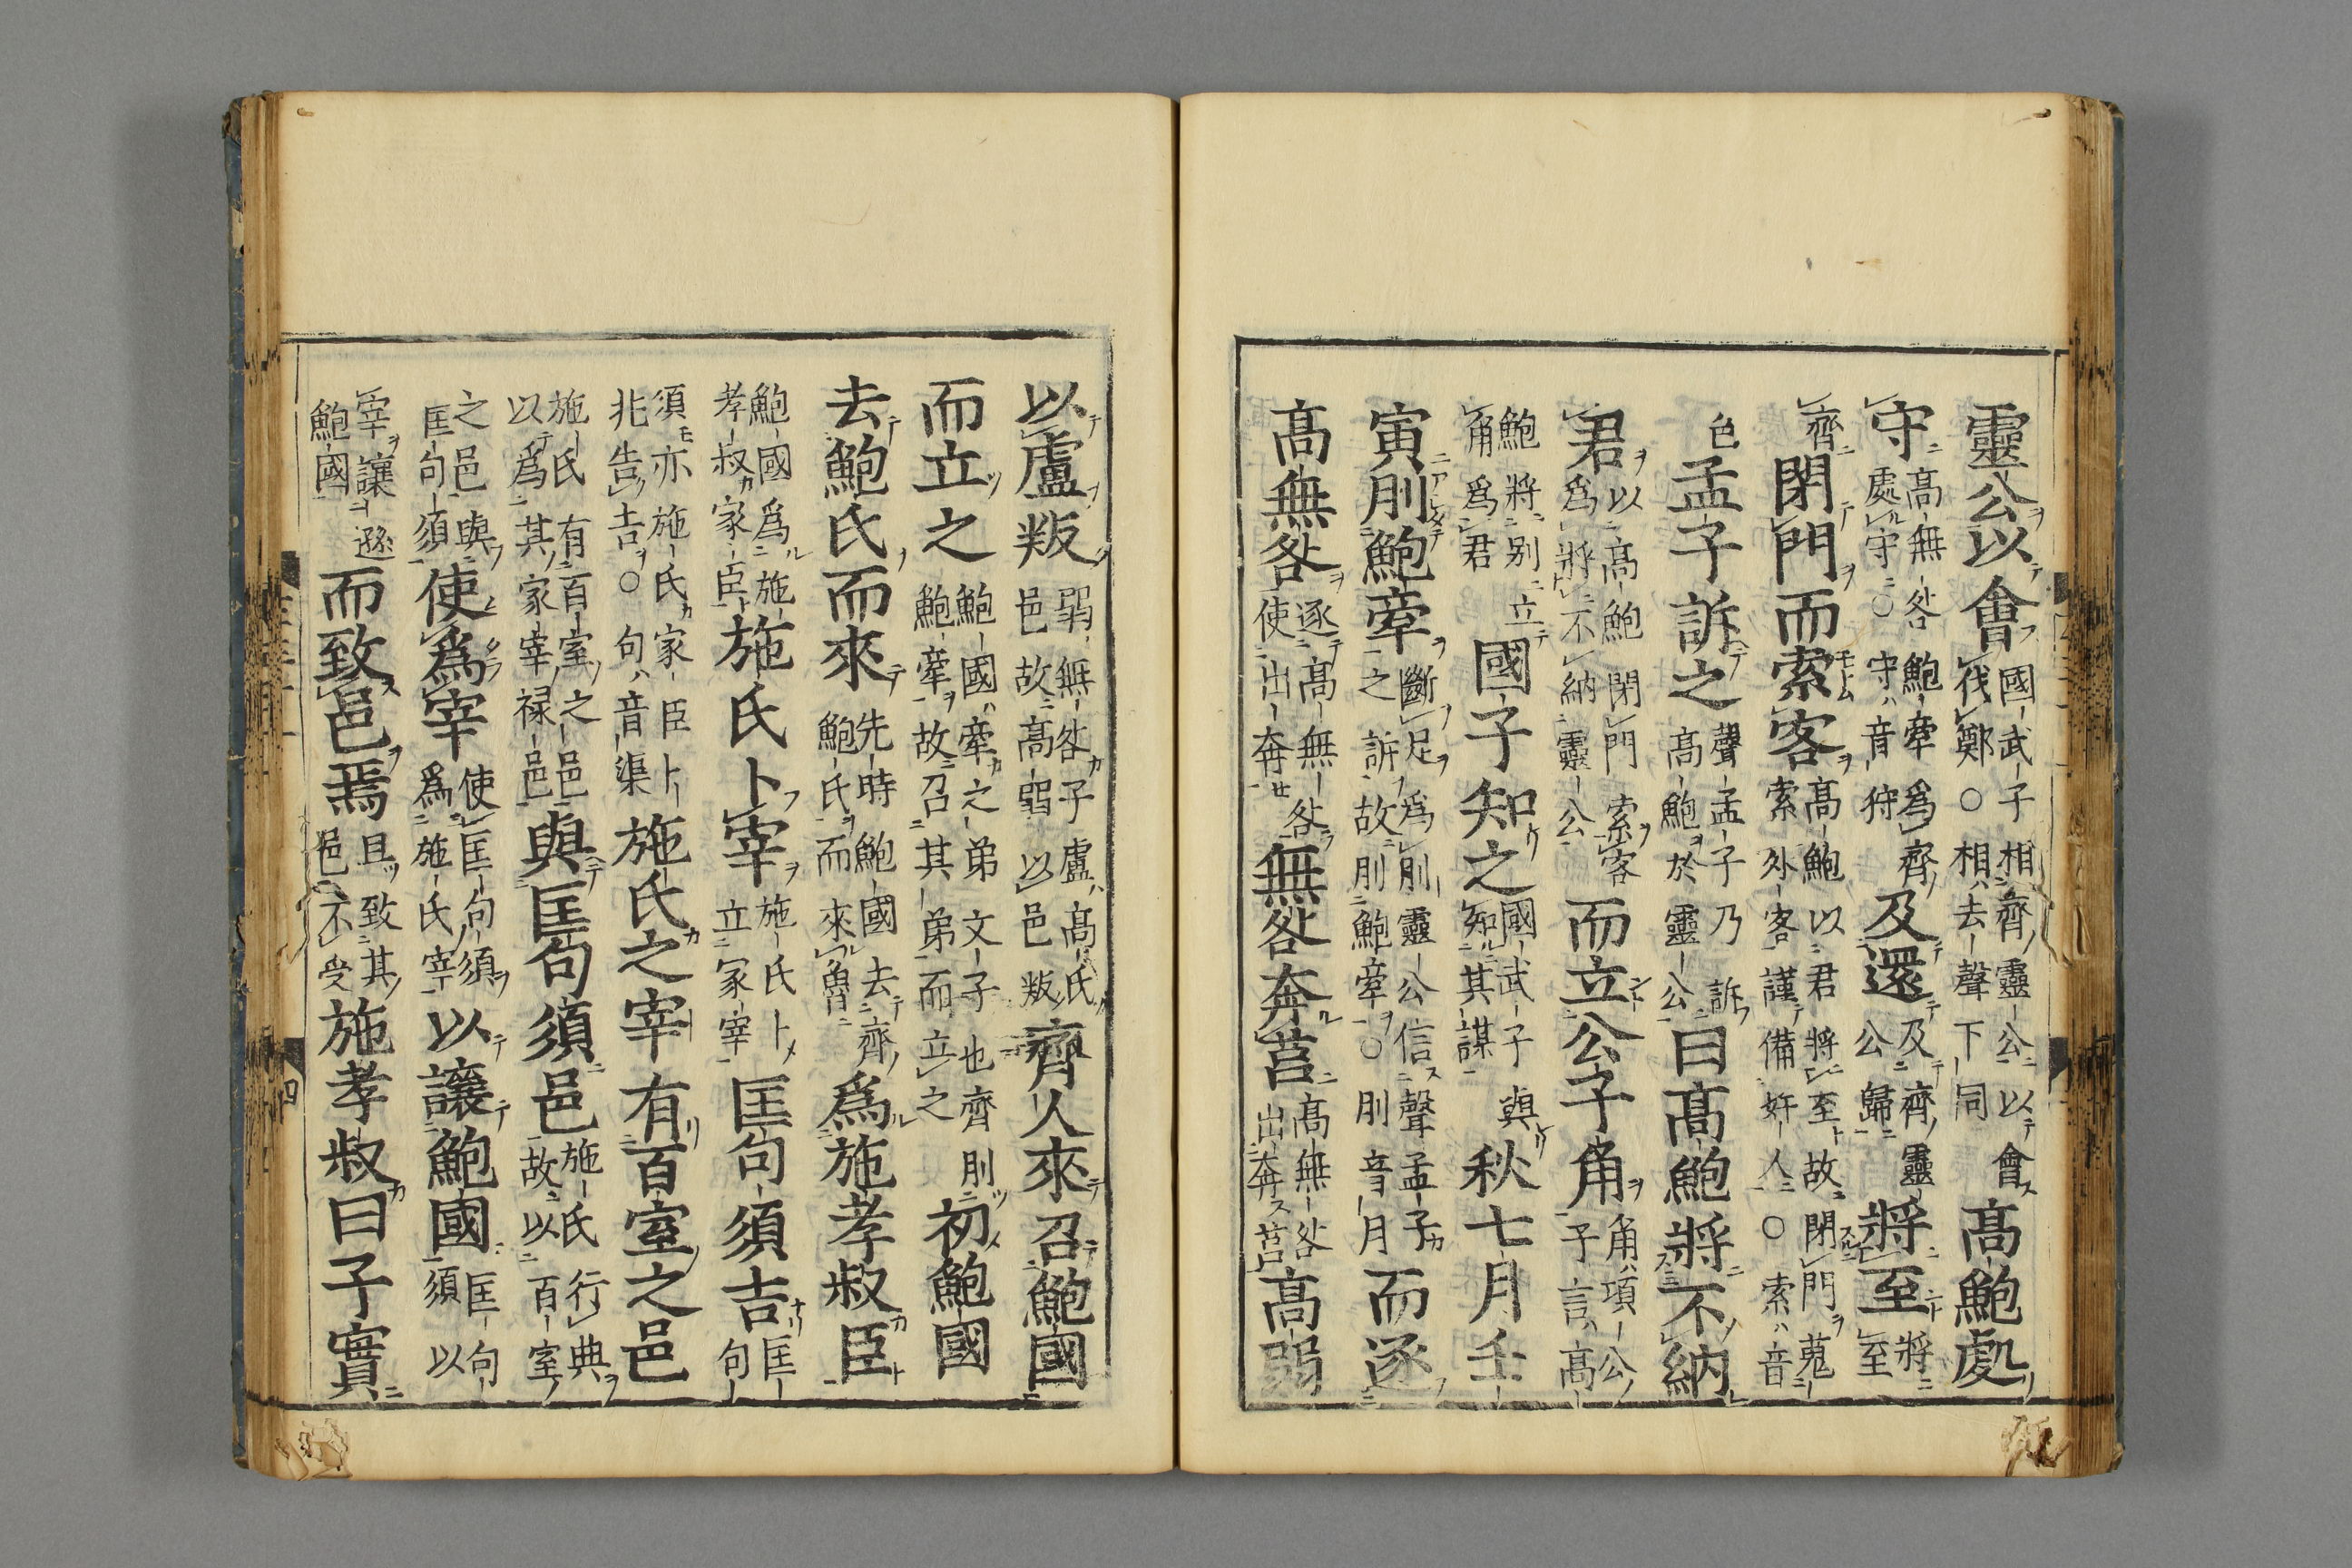 靈公以會國武子相齊靈公以會伐鄭○相去聲下同高鮑處
守高無咎鮑牽爲齊處守○守音狩及還及齊靈公歸將至將至
齊閉門而索客高鮑以君將至故閉門蒐索外客謹備奸人○索音
色孟子訴之聲孟子乃訴高鮑於靈公曰高鮑將不納
君以高鮑閉門索客爲將不納靈公而立公子角角項公子言高
鮑將別立角爲君國子知之國武子與知其謀秋七月壬
寅刖鮑牽斷足爲刖靈公信聲孟子之訴故刖鮑牽○刖音月而逐
高無咎逐高無咎使出奔無咎奔莒高無咎出奔莒高弱
以盧叛弱無咎子盧高氏邑故高弱以邑叛齊人來召鮑國
而立之鮑國牽之弟文子也齊刖鮑牽故召其弟而立之初鮑國
去鮑氏而來先時鮑國去齊鮑氏而來魯爲施孝叔臣
鮑國爲施孝叔家臣施氏卜宰施氏卜立家宰匡句須吉匡句
須亦施氏家臣卜兆告吉○句音渠施氏之宰有百室之邑
施氏有百室之邑以爲其家宰禄邑與匡句須邑施氏行典故以百室
之邑與匡句須使爲宰使匡句須爲施氏宰以讓鮑國匡句須以
宰讓遜鮑國而致邑焉且致其邑不受施孝叔曰子實
四